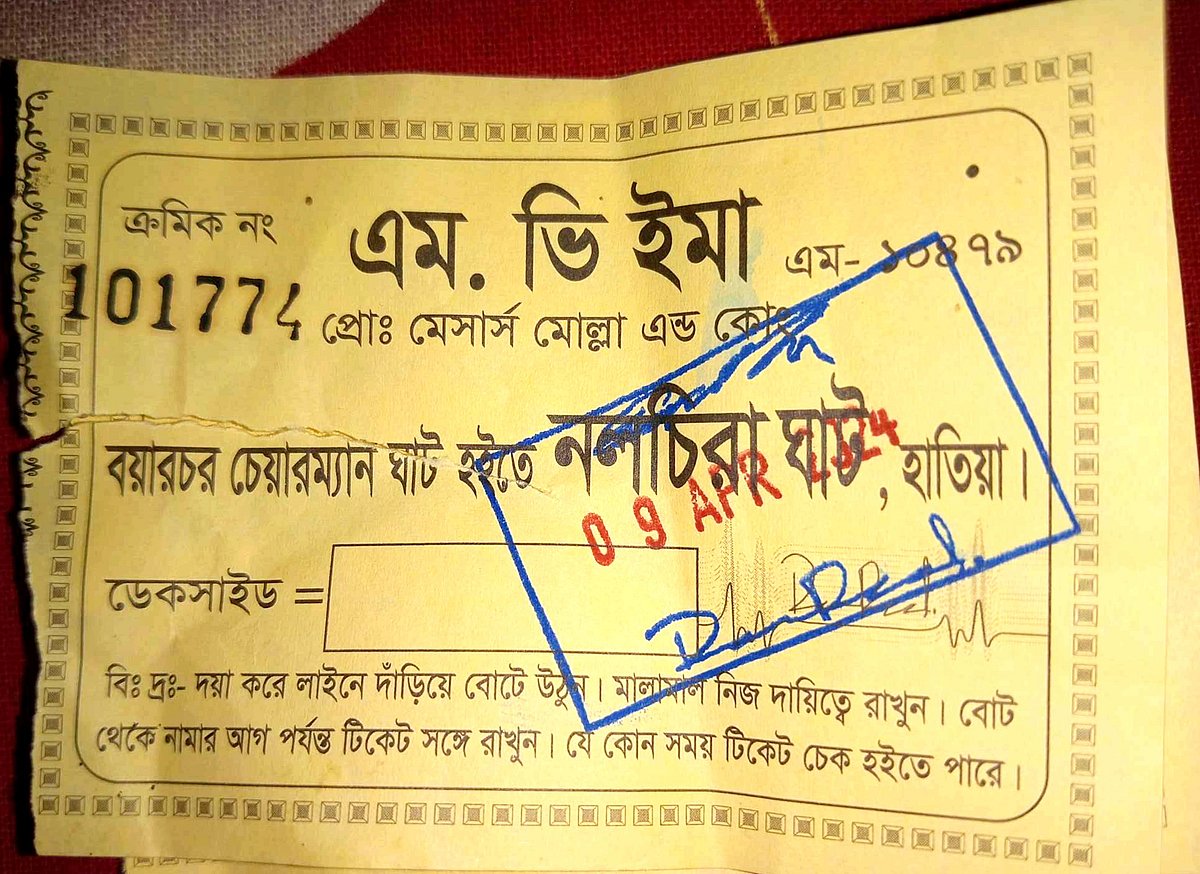 ক্রমিক নং
101774
এম. ভি ইমা
এম- ১০৪৭৯
প্রোঃ মেসার্স মোল্লা এন্ড কোং
বয়ারচর চেয়ারম্যান ঘাট হইতে নলচিরা ঘাট, হাতিয়া।
09 APR 2024
ডেকসাইড =
বিঃ দ্রঃ- দয়া করে লাইনে দাঁড়িয়ে বোটে উঠুন। মালামাল নিজ দায়িত্বে রাখুন। বোট
থেকে নামার আগ পর্যন্ত টিকেট সঙ্গে রাখুন। যে কোন সময় টিকেট চেক হইতে পারে।